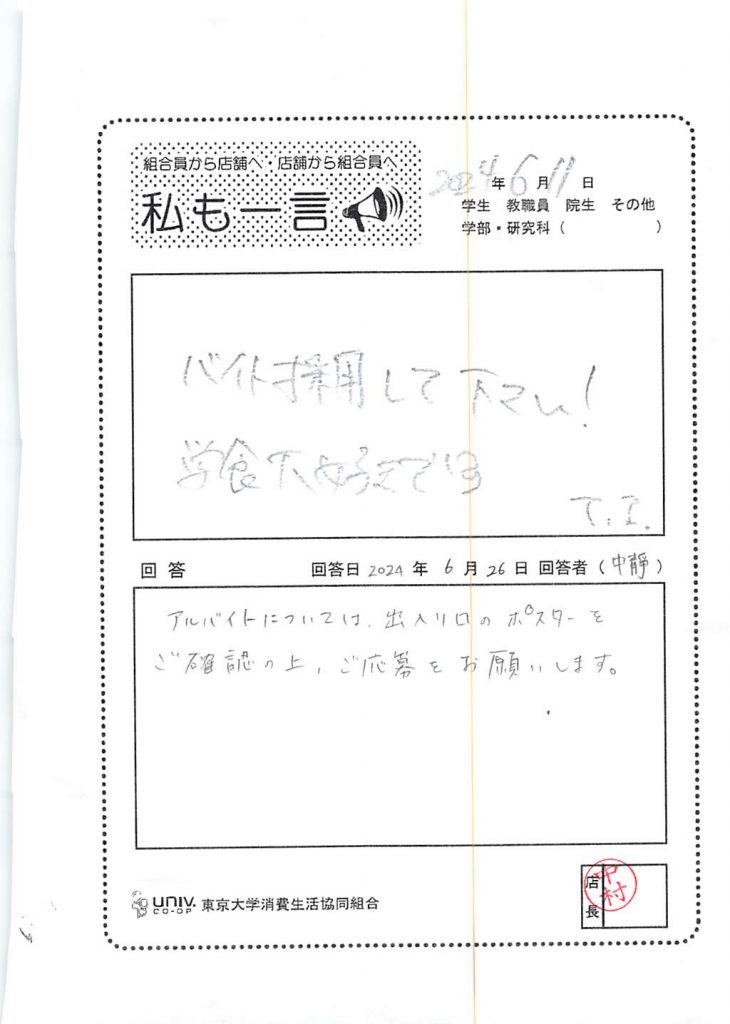 組合員から店舗へ・店舗から組合員へ
私も一言
2024年6月11日
学生 教職員 院生 その他
学部・研究科( )
バイト採用して下さい!
学食大好きです
T.I.
回答 回答日 2024年 6月26日 回答者(中静)
アルバイトについては、出入り口のポスターを
ご確認の上、ご応募をお願いします。
UNIV.
CO-OP
東京大学消費生活協同組合
店長
中村